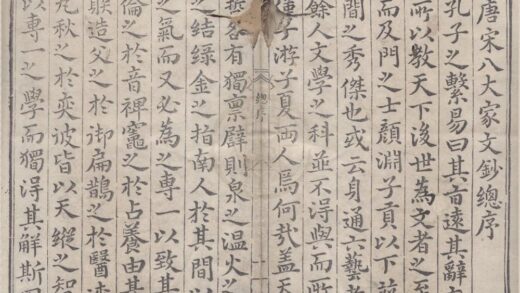 唐宋八大家文鈔總序
孔子之繫易曰其旨遠其辭
所以教天下後世為文者之至
而及門之士顏淵子貢以下
間之秀傑也或云身通六藝
餘人文學之科並不得與而所
僅子游子夏兩人焉何哉蓋天
總序
哲各有獨稟譬則泉之溫火之
之結綠金之指南人於其間以
之氣而又必為之專一以致其
倫之於音裨竈之於占養由其
造父之於御扁鵲之於醫
丸秋之於奕彼皆以天縱之知
以專一之學而獨得其解斯